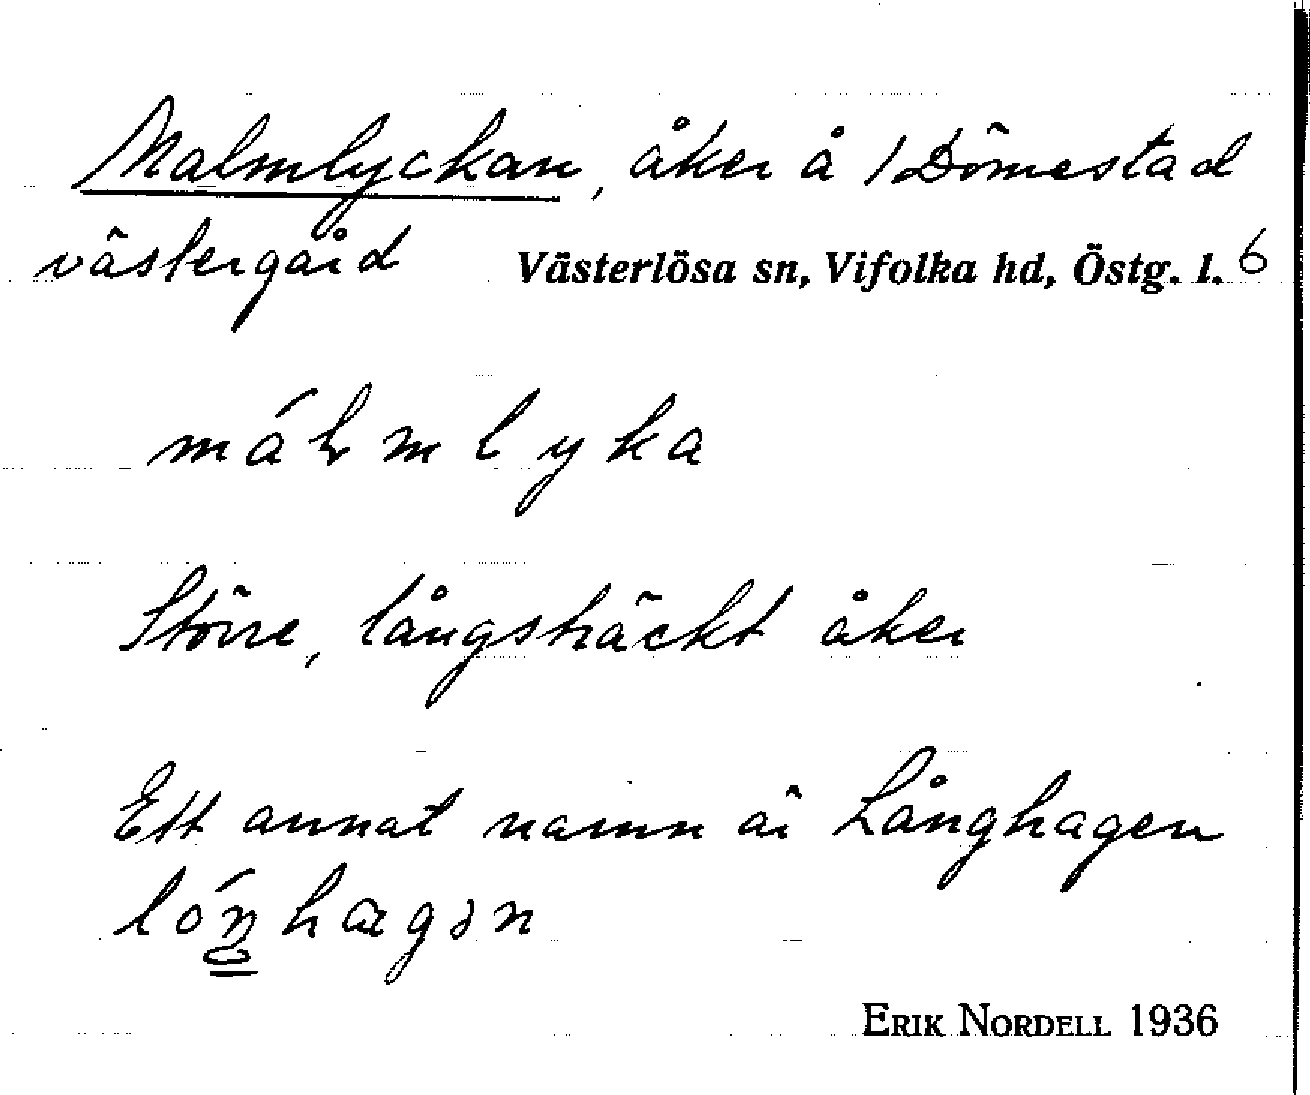 Malmlyckan, åker å 1 Dömestad
västergård Västerlösa sn, Vifolka hd, Östg. l. 6
máłmlyka
Större, långsträckt åker
Ett annat namn är Långhagen
lóŋhagən
ERIK NORDELL 1936